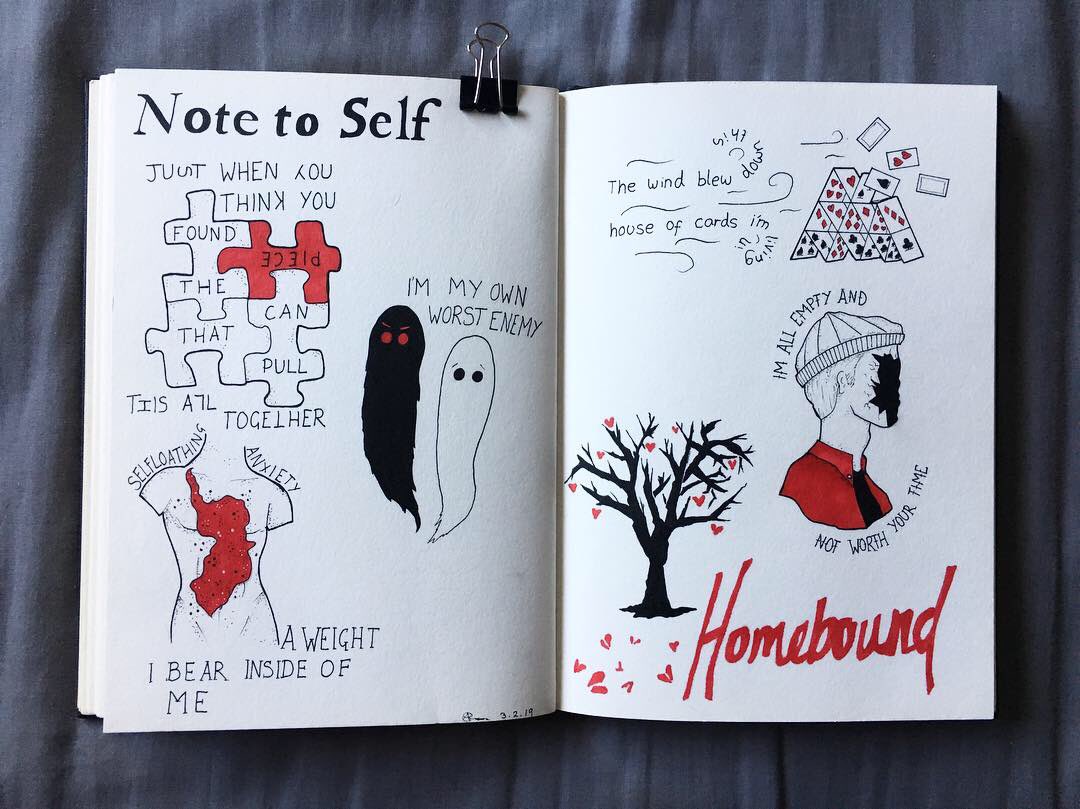 Note to Self
JUST WHEN YOU
THINK YOU
FOUND
PIECE
THE
CAN
THAT
PULL
THIS ALL
TOGETHER
I'M MY OWN
WORST ENEMY
SELFLOATHING
ANXIETY
A WEIGHT
I BEAR INSIDE OF
ME
3.2.19
The wind blew down this
house of cards i'm living in
IM ALL EMPTY AND
NOT WORTH YOUR TIME
Homebound